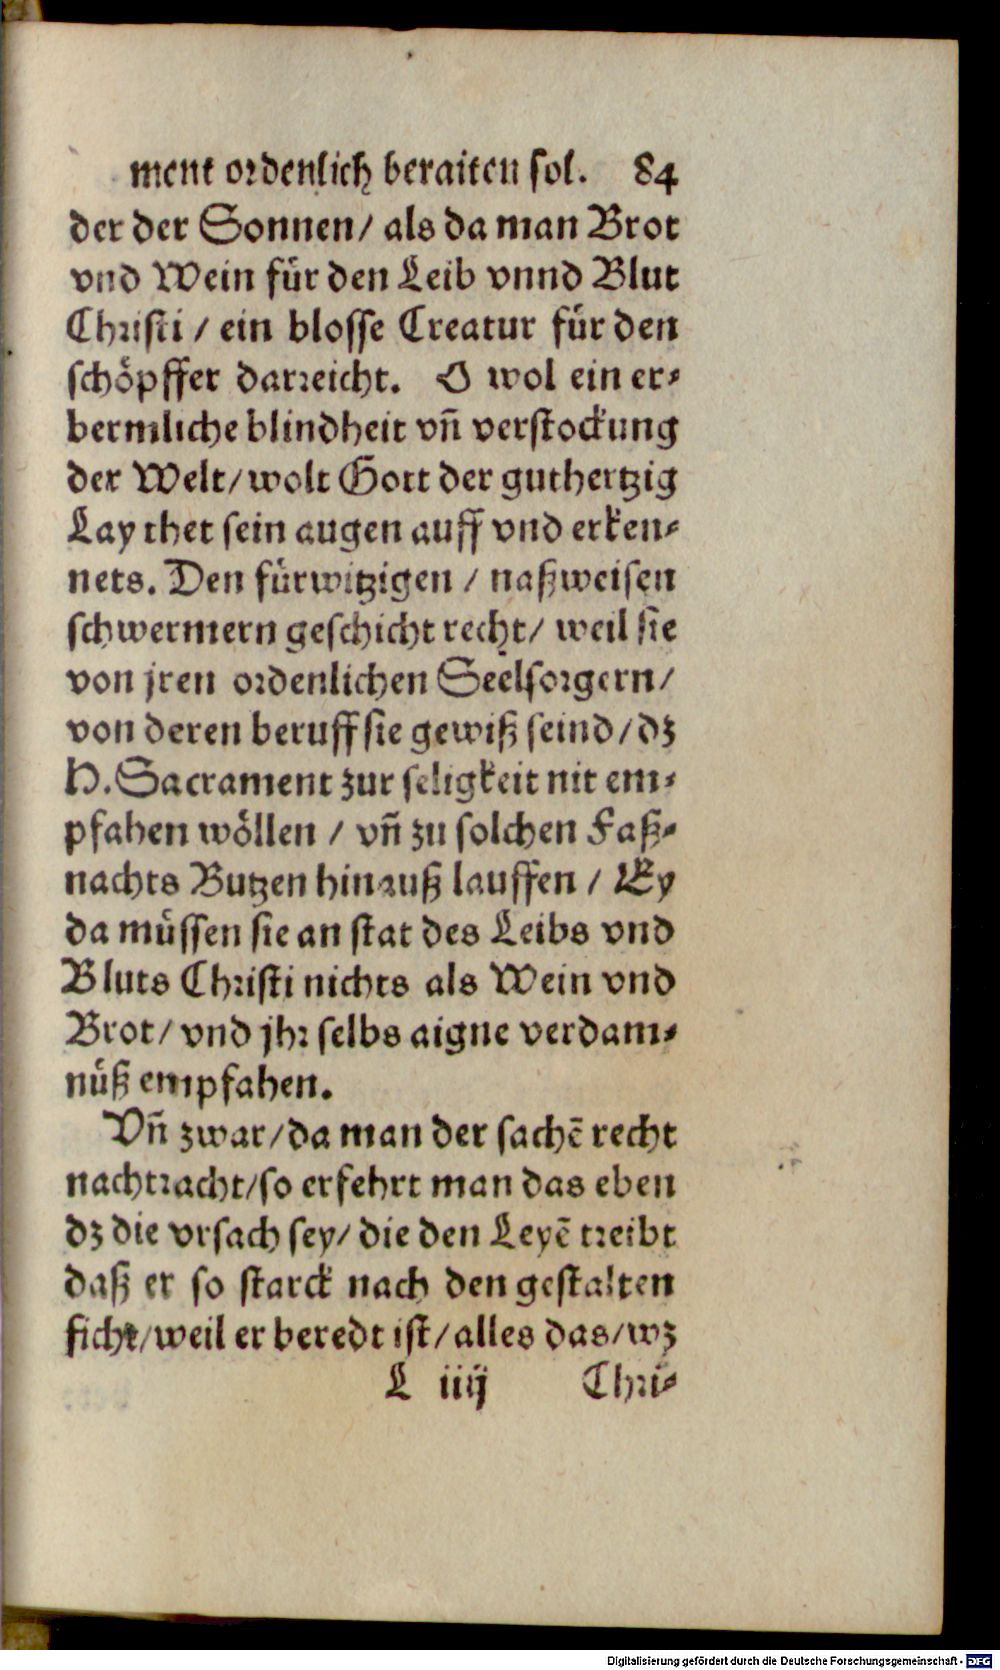 ment ordenlich beraiten sol. 84
der der Sonnen/ als da man Brot
vnd Wein für den Leib vnnd Blut
Christi / ein blosse Creatur für den
schöpffer darreicht. O wol ein er⸗
bermliche blindheit vn̄ verstockung
der Welt/ wolt Gott der guthertzig
Lay thet sein augen auff vnd erken⸗
nets. Den fürwitzigen / naßweisen
schwermern geschicht recht/ weil sie
von jren ordenlichen Seelsorgern/
von deren beruff sie gewiß seind/ dz
H. Sacrament zur seligkeit nit em⸗
pfahen wöllen / vn̄ zu solchen Faß⸗
nachts Butzen hinauß lauffen / Ey
da müssen sie an stat des Leibs vnd
Bluts Christi nichts als Wein vnd
Brot/ vnd jhr selbs aigne verdam⸗
nüß empfahen.
Vn̄ zwar/ da man der sachē recht
nachtracht/ so erfehrt man das eben
dz die vrsach sey/ die den Leyē treibt
daß er so starck nach den gestalten
ficht/ weil er beredt ist/ alles das/ wz
L iiij Chri⸗
Digitalisierung gefördert durch die Deutsche Forschungsgemeinschaft - DFG